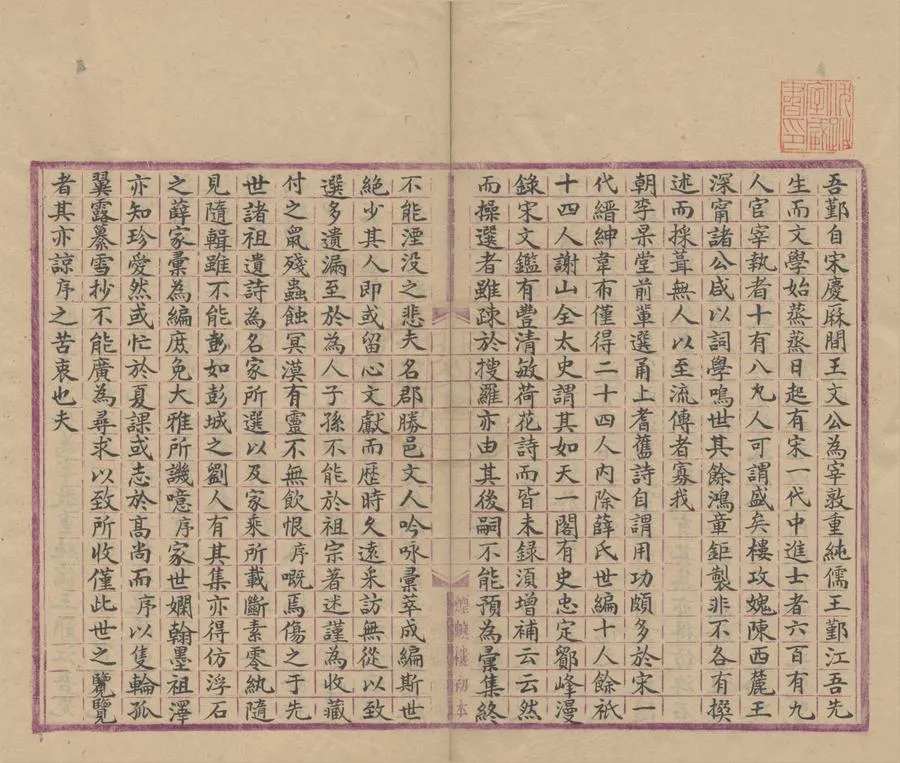 吾鄞自宋慶厤間王文公為宰敦重純儒王鄞江吾先
生而文學始蒸蒸日起有宋一代中進士者六百有九
人官宰執者十有八九人可謂盛矣樓攻媿陳西麓王
深甯諸公咸以詞學鳴世其餘鴻章鉅製非不各有撰
述而採葺無人以至流傳者寡我
朝李杲堂前軰選甬上耆舊詩自謂用功頗多於宋一
代縉紳韋布僅得二十四人内除薛氏世編十人餘祇
十四人謝山全太史謂其如天一閣有史忠定鄮峰漫
錄宋文鑑有豐清敏荷花詩而皆未録須增補云云然
而操選者雖疎於搜羅亦由其後嗣不能預為彙集終
不能湮没之悲夫名郡勝邑文人吟咏彙萃成編斯世
絶少其人即或留心文獻而歷時久遠采訪無從以致
選多遺漏至於為人子孫不能於祖宗著述謹為收藏
付之鼠殘蟲蝕冥漠有靈不無飲恨序嘅焉傷之于先
世諸祖遺詩為名家所選以及家乘所載斷素零紈隨
見隨輯雖不能彭如彭城之劉人有其集亦得仿浮石
之薛家彙為編庶免大雅所譏噫序家世嫻翰墨祖澤
亦知珍愛然或忙於夏課或志於髙尚而序以隻輪孤
翼露纂雪抄不能廣為尋求以致所收僅此世之覽覽
者其亦諒序之苦衷也夫
煙嶼樓初本